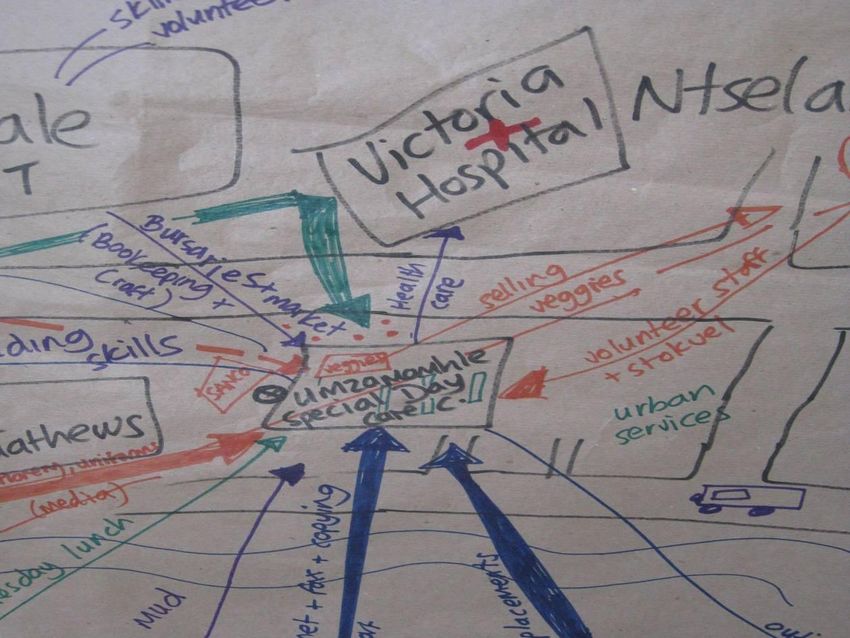 skil
volunteer
ale
T
Victoria
Hospital
Ntsela
Bursaries + market
(Bookeeping +
Craft)
Health
care
selling
veggies
volunteer staff
+ stokvel
ding
skills
SANCO
veggies
Umzamomhle
Special Day
care C.
urban
services
athews
uniforms
(media)
esday lunch
Mud
net + fax + copying
placements